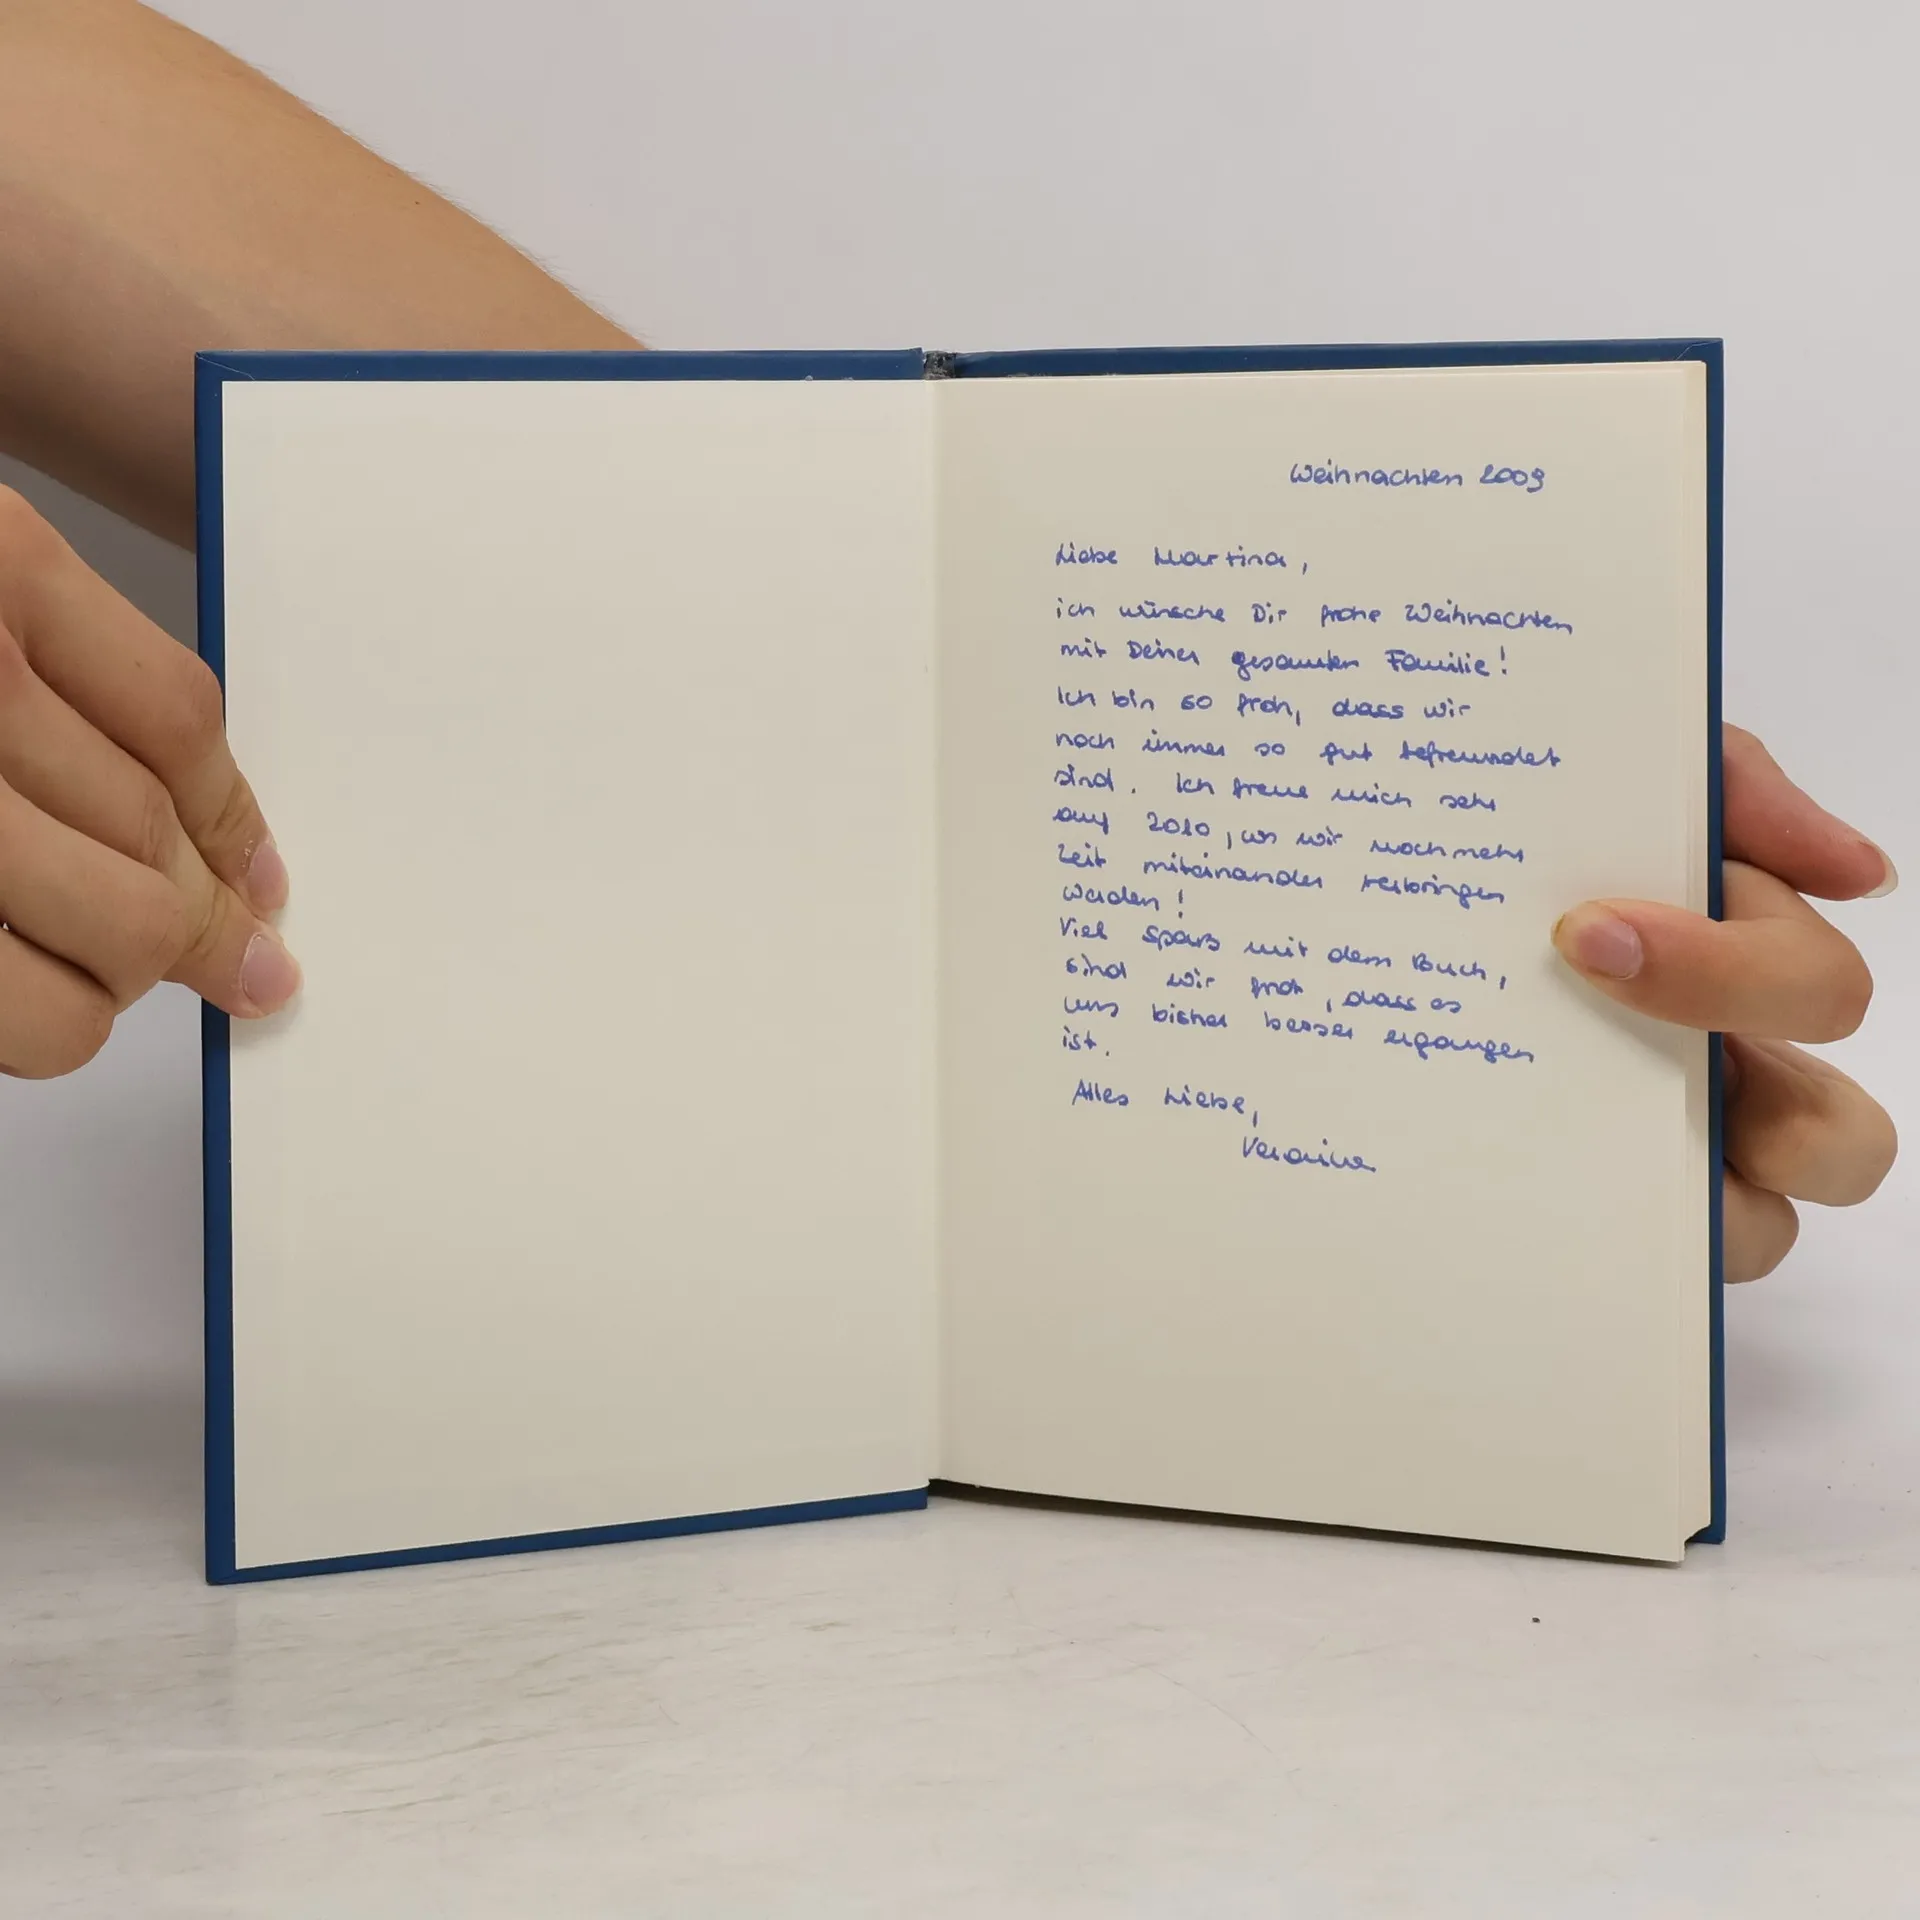 Weihnachten 2009
Liebe Martina,
ich wünsche Dir frohe Weihnachten
mit Deiner gesamten Familie!
Ich bin so froh, dass wir
noch immer so gut befreundet
sind. Ich freue mich sehr
auf 2010, wo wir noch mehr
Zeit miteinander verbringen
werden!
Viel Spass mit dem Buch,
sind wir froh, dass es
uns bisher besser ergangen
ist.
Alles Liebe,
Veronika